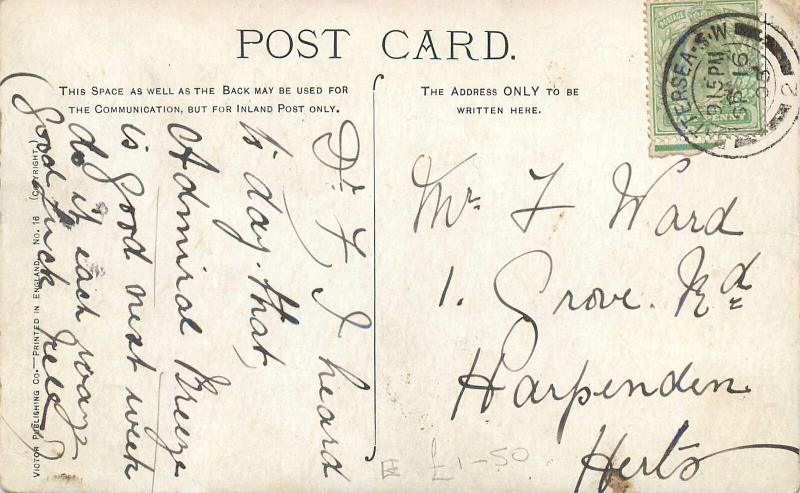 POST CARD.
THIS SPACE AS WELL AS THE BACK MAY BE USED FOR
THE COMMUNICATION, BUT FOR INLAND POST ONLY.
THE ADDRESS ONLY TO BE
WRITTEN HERE.
Dr F, I heard
to day that
Admiral Breeze
is good next week
do it each way
Good luck
VICTOR PUBLISHING CO.—PRINTED IN ENGLAND. NO. 16 (COPYRIGHT)
Mr. F Ward
1. Grove. Rd
Harpenden
Herts
£1-50
TERSEA·S.W
9.15PM
16
2
PENNY